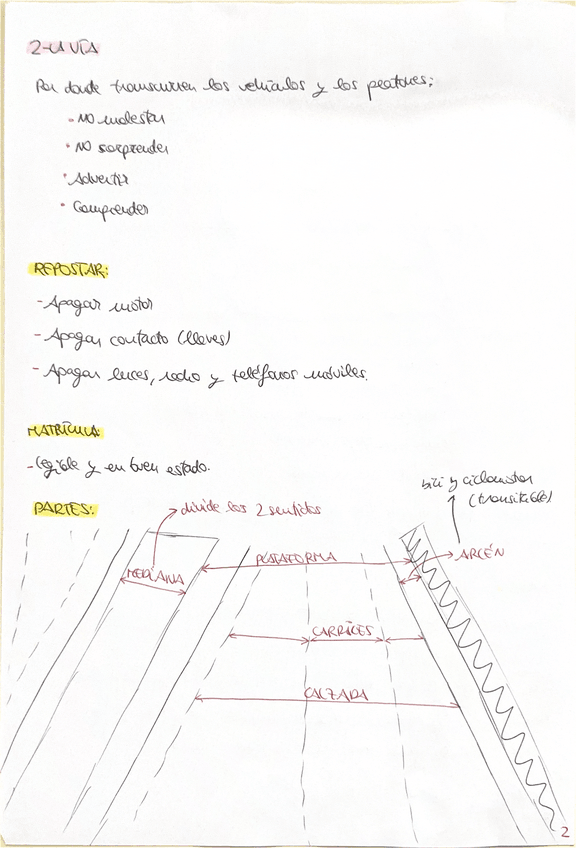 2-LA VÍA
Por donde transcurren los vehículos y los peatones:
• NO molestar
• NO sorprender
• Advertir
• Comprender
REPOSTAR:
- Apagar motor
- Apagar contacto (llaves)
- Apagar luces, radio y teléfonos móviles.
MATRÍCULA:
- legible y en buen estado.
bici y ciclomotor
(transitable)
PARTES:
divide los 2 sentidos
PLATAFORMA
ARCÉN
MEDIANA
CARRILES
CALZADA
2